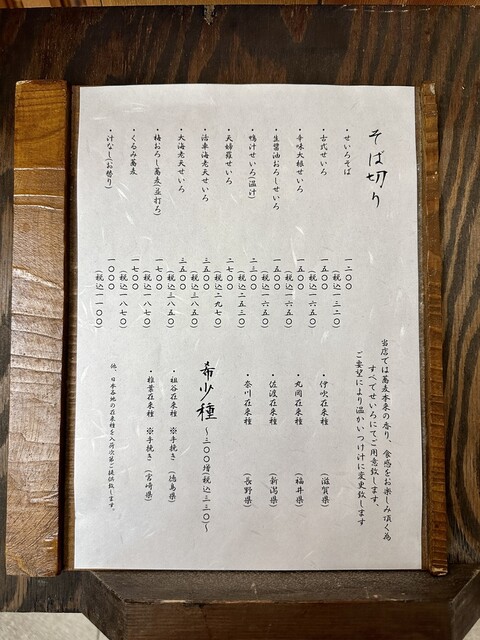 そば切り
・せいろそば 一二〇〇
(税込一三二〇)
・古式せいろ 一五〇〇
(税込一六五〇)
・辛味大根せいろ 一五〇〇
(税込一六五〇)
・生醤油おろしせいろ 一五〇〇
(税込一六五〇)
・鴨汁せいろ(温汁) 二三〇〇
(税込二五三〇)
・天婦羅せいろ 二七〇〇
(税込二九七〇)
・活車海老天せいろ 三五〇〇
(税込三八五〇)
・大海老天せいろ 三五〇〇
(税込三八五〇)
・梅おろし蕎麦(並打ち) 一七〇〇
(税込一八七〇)
・くるみ蕎麦 一七〇〇
(税込一八七〇)
・汁なし(お替り) 一〇〇〇
(税込一一〇〇)
当店では蕎麦本来の香り、食感をお楽しみ頂く為
すべてせいろにてご用意致します。
ご要望により温かいつけ汁に変更致します
・伊吹在来種 (滋賀県)
・丸岡在来種 (福井県)
・佐渡在来種 (新潟県)
・奈川在来種 (長野県)
希少種 〜三〇〇増税込三三〇〜
・祖谷在来種 ※手挽き (徳島県)
・椎葉在来種 ※手挽き (宮崎県)
他、日本各地の在来種を入荷次第ご提供致します。